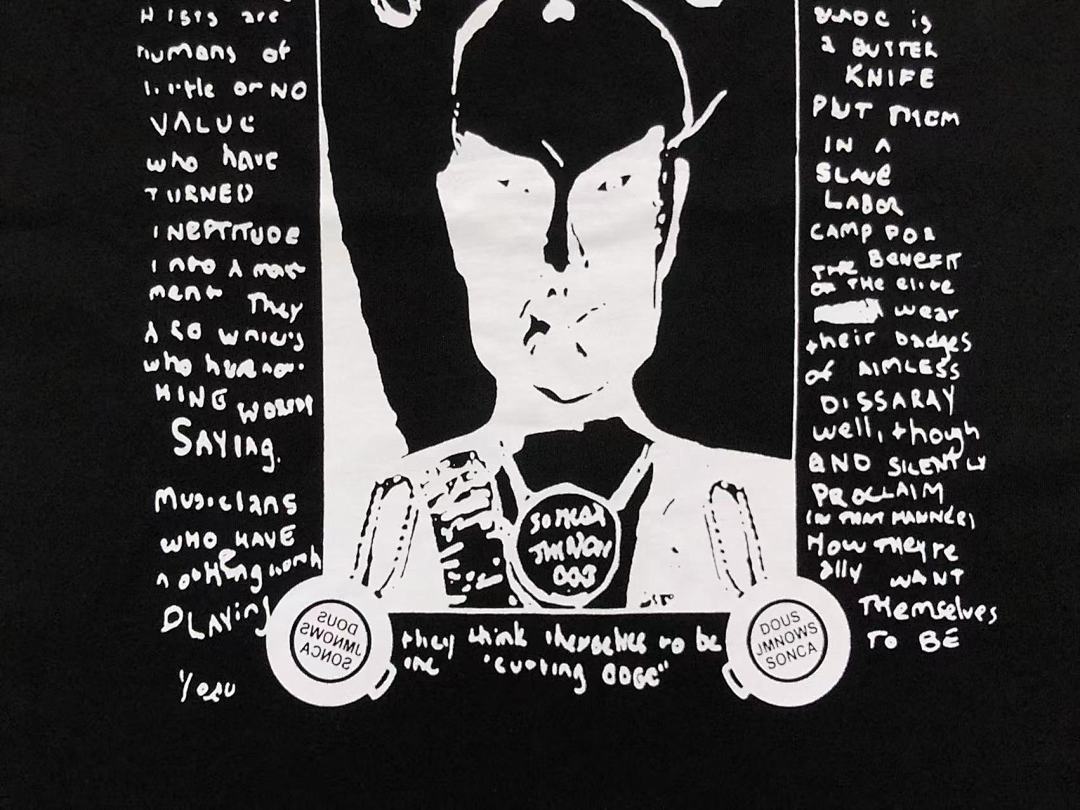 are
humans of
little or NO
VALUE
who have
TURNED
INEPTITUDE
INTO A
They
ALSO
who
Saying.
Musicians
WHO HAVE
nothing worth
PLAYing
is
a BUTTER
KNIFE
PUT THEM
IN A
SLAVE
LABOR
CAMP FOR
THE BENEFIT
OF THE elite
wear
their badges
of AIMLESS
DISSARAY
well, though
AND SILENTLY
PROCLAIM
(IN THAT MANNER)
HOW THEY're
ally WANT
Themselves
TO BE
003
DOUS
JMNOWS
SONCA
they think themselves to be
the "cutting
DOUS
JMNOWS
SONCA